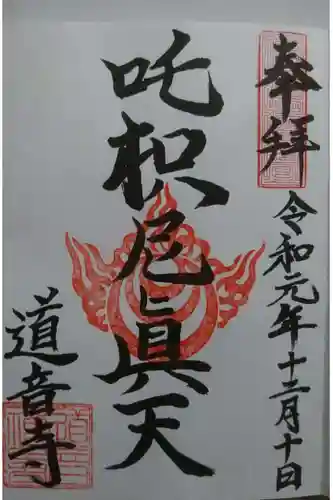 奉拝
令和元年十二月十日
吒枳尼眞天
道音寺